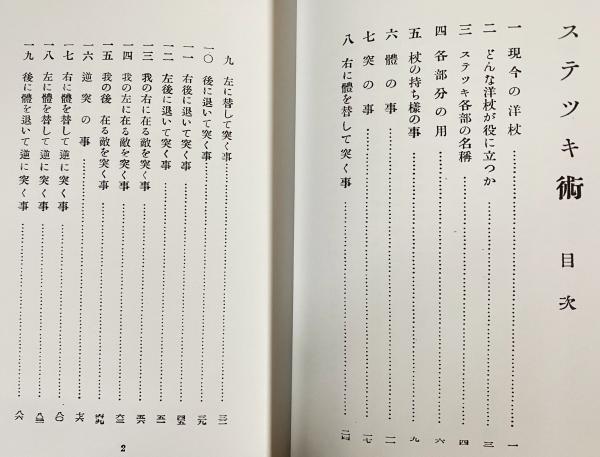 ステツキ術 目次
一 現今の洋杖 一
二 どんな洋杖が役に立つか 三
三 ステツキ各部の名稱 四
四 各部分の用 六
五 杖の持ち様の事 九
六 體の事 一一
七 突の事 一七
八 右に體を替して突く事 二四
九 左に替して突く事 三一
一〇 後に退いて突く事 三九
一一 右後に退いて突く事 四五
一二 左後に退いて突く事 五一
一三 我の右に在る敵を突く事 五六
一四 我の左に在る敵を突く事 六三
一五 我の後 在る敵を突く事 六九
一六 逆突の事 七六
一七 右に體を替して逆に突く事 八〇
一八 左に體を替して逆に突く事 八三
一九 後に體を退いて逆に突く事 八六
2